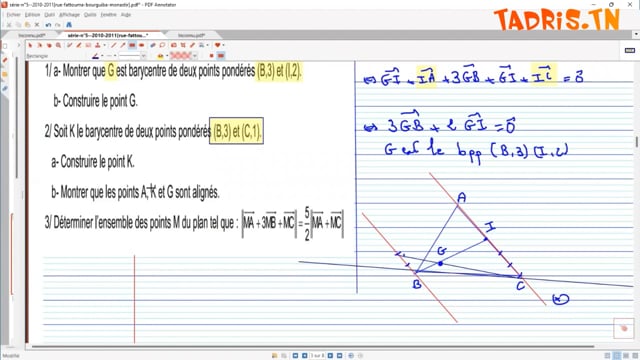 série-n°5--2010-2011[rue-fattouma-bourguiba-monastir].pdf* - PDF Annotator
TADRIS.TN
1/ a- Montrer que G est barycentre de deux points pondérés (B,3) et (I,2).
b- Construire le point G.
2/ Soit K le barycentre de deux points pondérés (B,3) et (C,1).
a- Construire le point K.
b- Montrer que les points A, K et G sont alignés.
3/ Déterminer l'ensemble des points M du plan tel que : ‖MA + 3MB + MC‖ = 5/2 ‖MA + MC‖
⇔ GI + IA + 3GB + GI + IC = 0
⇔ 3GB + 2GI = 0
G est le bpp (B,3) (I,2)
A
I
G
B
C